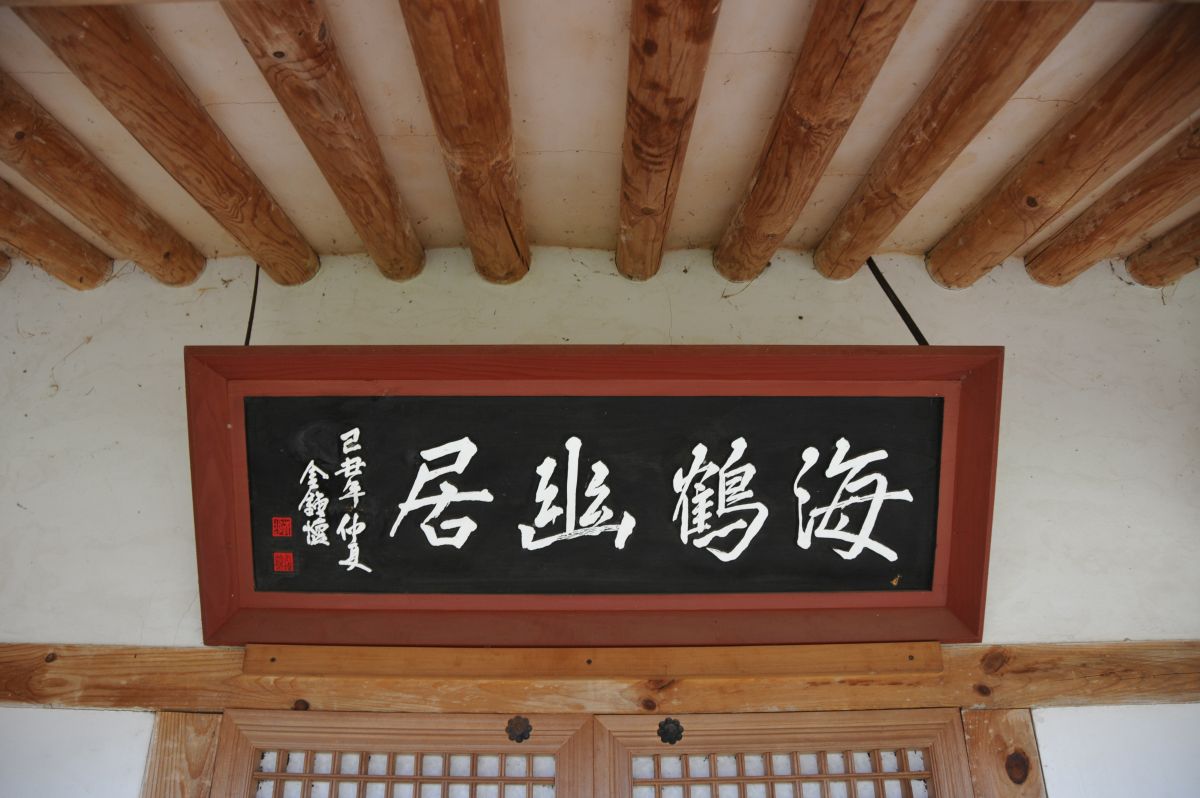 海鶴幽居
己丑年仲夏
金鍾懷